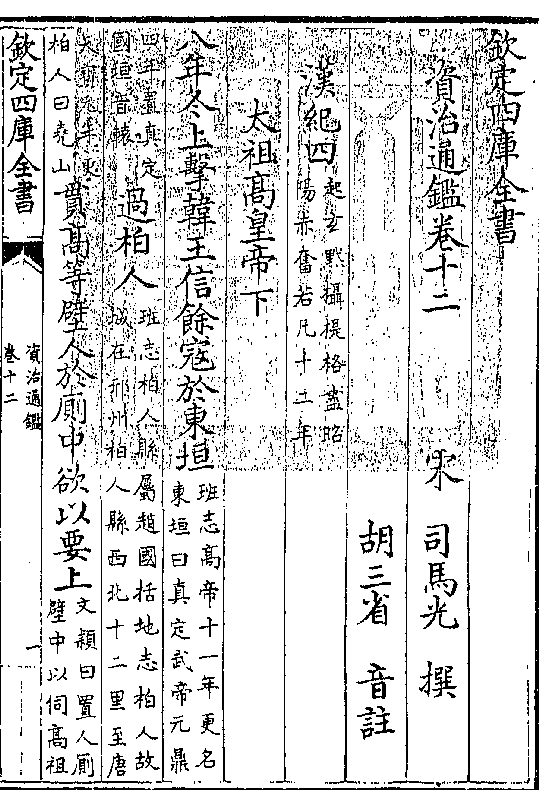 欽定四庫全書
資治通鑑卷十二
宋 司馬光 撰
胡三省 音註
漢紀四 起玄黓攝提格盡昭
陽赤奮若凡十二年
太祖髙皇帝下
八年冬上擊韓王信餘寇於東垣 班志髙帝十一年更名
東垣曰真定武帝元鼎
四年置真定
國垣音轅 過柏人 班志柏人縣屬趙國括地志柏人故
城在邢州柏人縣西北十二里至唐
柏人曰堯山 貫髙等壁人於厠中欲以要上 文穎曰置人厠
壁中以伺髙祖
欽定四庫全書
資治通鑑
卷十二
一